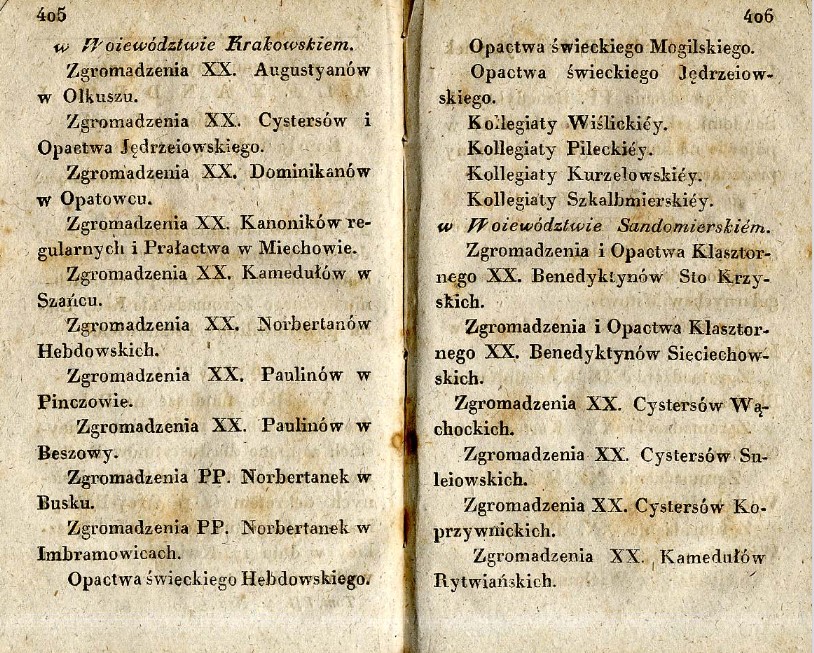 405
w Woiewództwie Krakowskiem.
Zgromadzenia XX. Augustyanów
w Olkuszu.
Zgromadzenia XX. Cystersów i
Opactwa Jędrzeiowskiego.
Zgromadzenia XX. Dominikanów
w Opatowcu.
Zgromadzenia XX. Kanoników re-
gularnych i Prałactwa w Miechowie.
Zgromadzenia XX. Kamedułów w
Szańcu.
Zgromadzenia XX. Norbertanów
Hebdowskich.
Zgromadzenia XX. Paulinów w
Pinczowie.
Zgromadzenia XX. Paulinów w
Beszowy.
Zgromadzenia PP. Norbertanek w
Busku.
Zgromadzenia PP. Norbertanek w
Imbramowicach.
Opactwa świeckiego Hebdowskiego.
406
Opactwa świeckiego Mogilskiego.
Opactwa świeckiego Jędrzeiow-
skiego.
Kollegiaty Wiślickiéy.
Kollegiaty Pileckiéy.
Kollegiaty Kurzelowskiéy.
Kollegiaty Szkalbmierskiéy.
w Woiewództwie Sandomierskiém.
Zgromadzenia i Opactwa Klasztor-
nego XX. Benedyktynów Sto Krzy-
skich.
Zgromadzenia i Opactwa Klasztor-
nego XX. Benedyktynów Sieciechow-
skich.
Zgromadzenia XX. Cystersów Wą-
chockich.
Zgromadzenia XX. Cystersów Su-
leiowskich.
Zgromadzenia XX. Cystersów Ko-
przywnickich.
Zgromadzenia XX. Kamedułów
Rytwiańskich.